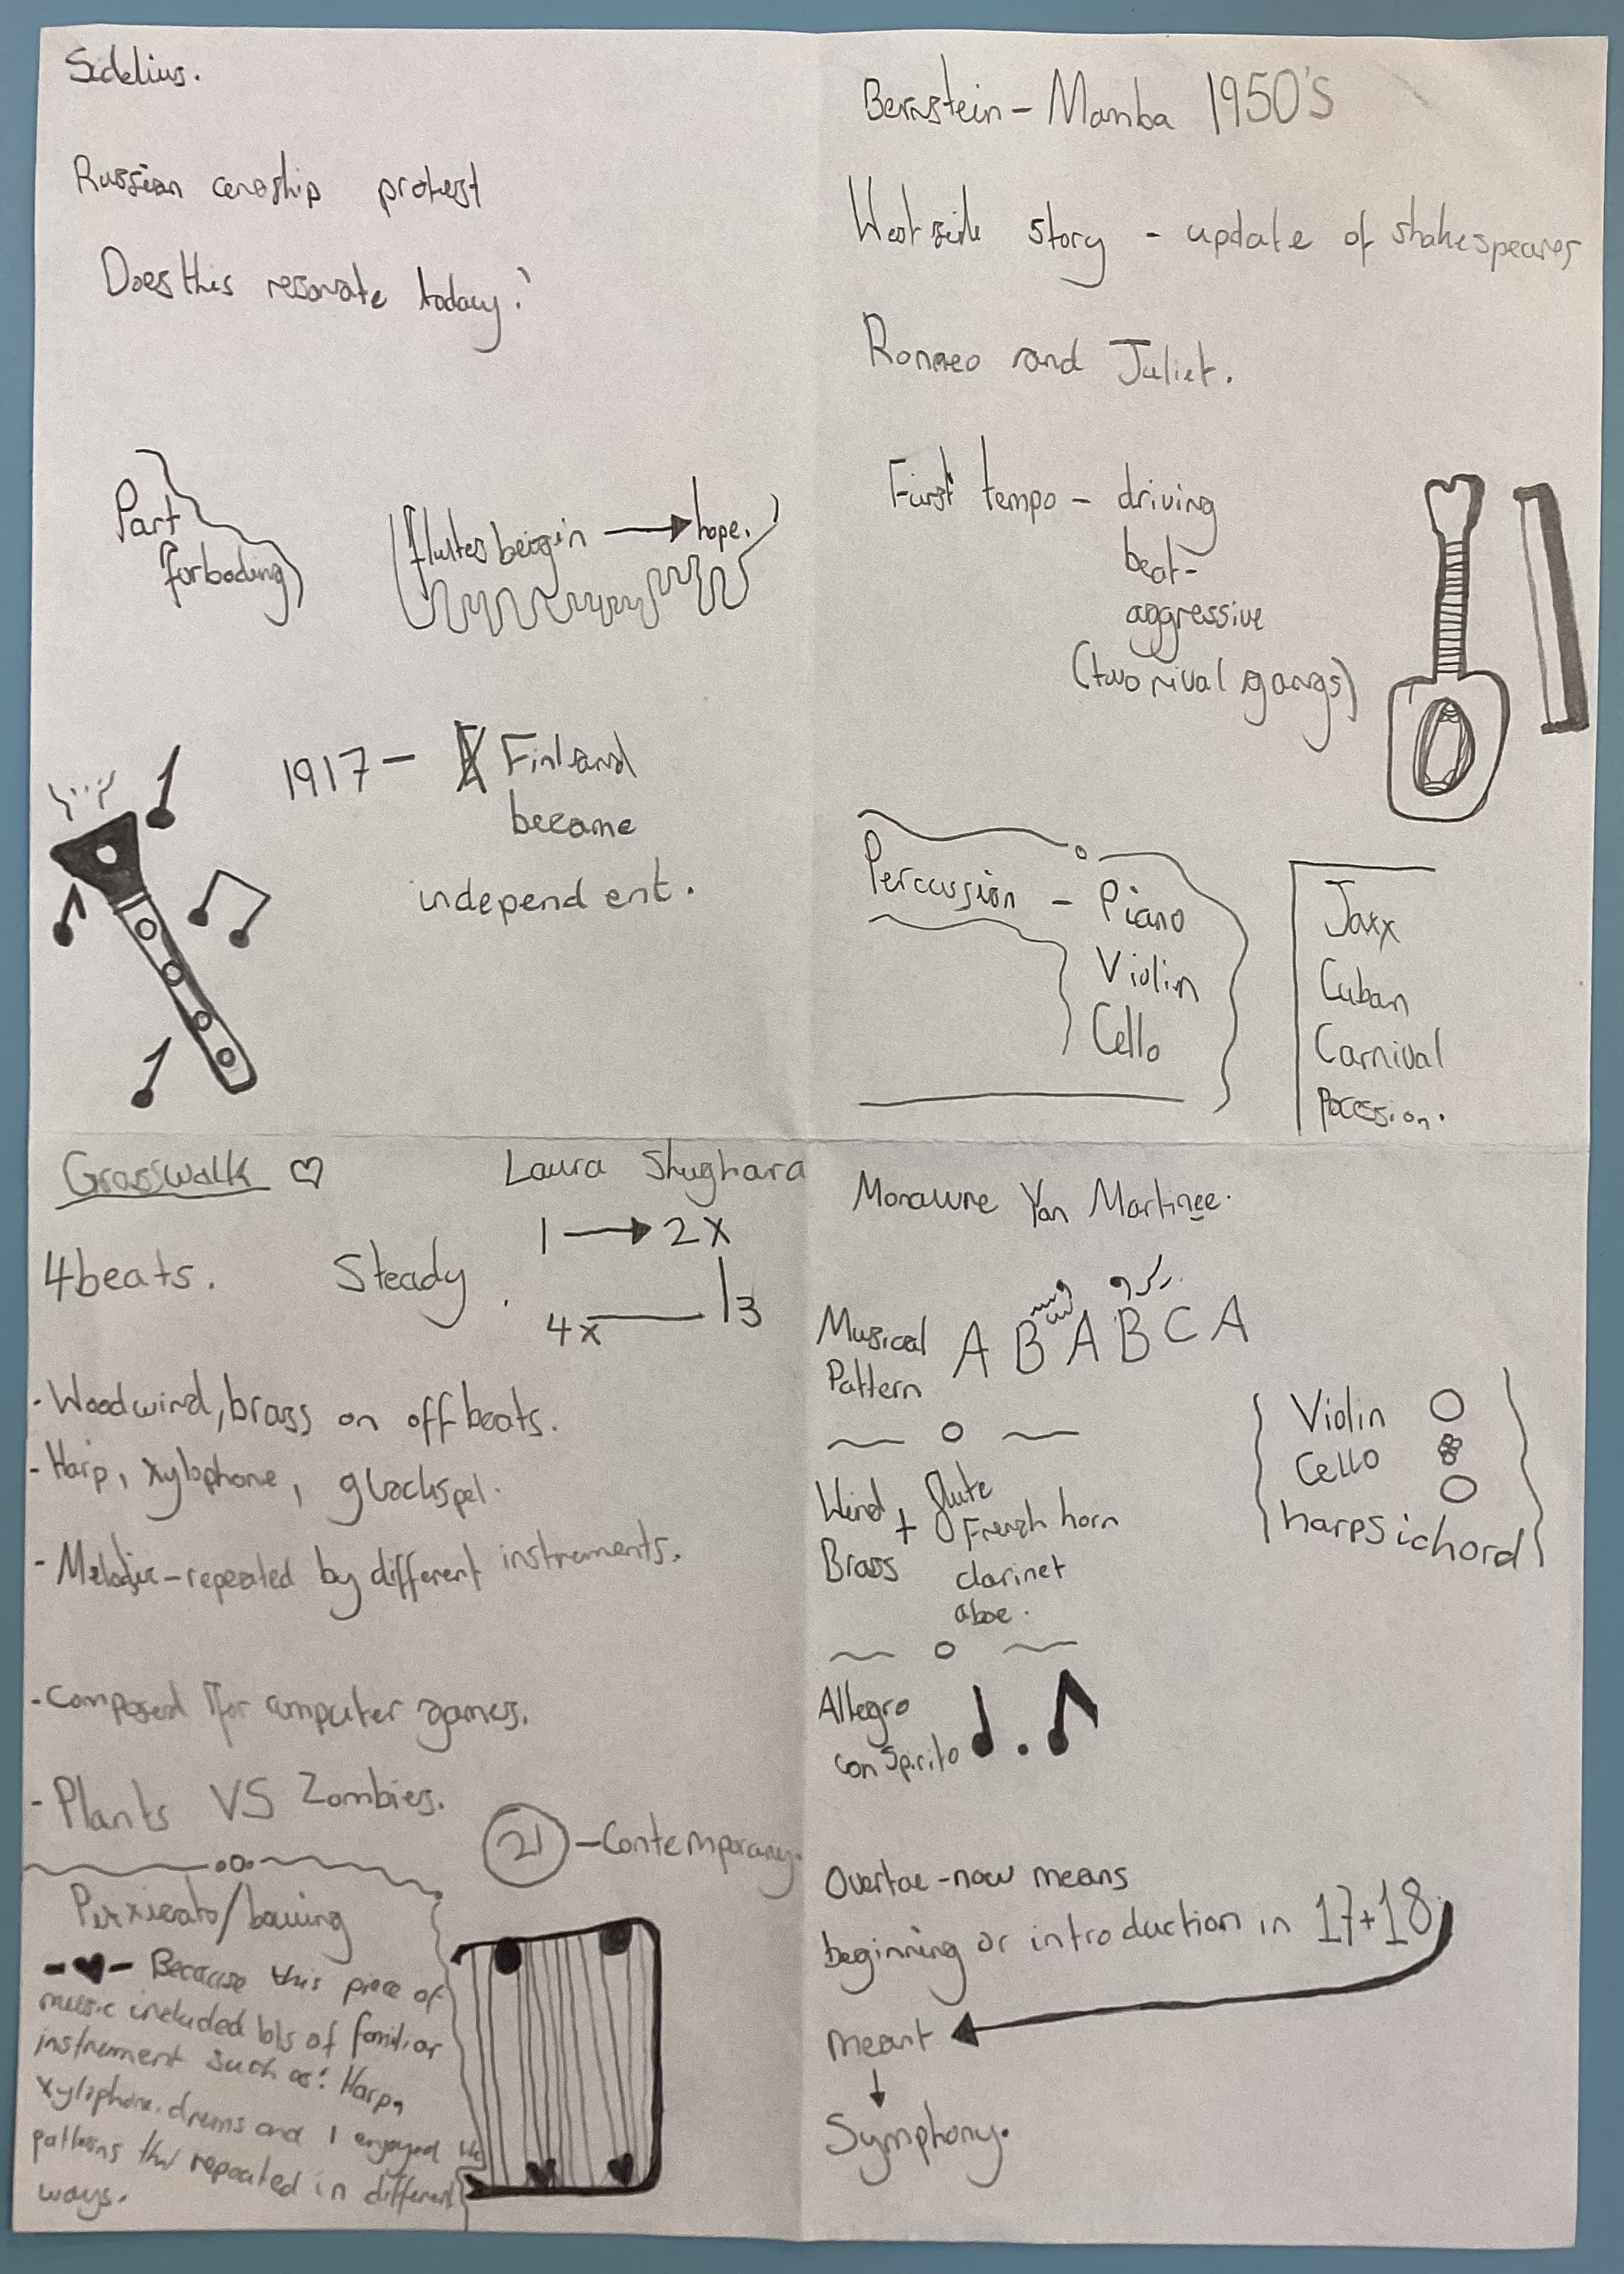 Sidelius.
Russian cenoship protest
Does this resonate today?
Part
forboding
flutes beigin → hope.
1917 - Finland
became
independent.
Bernstein - Mamba 1950's
West side story - update of shakespeares
Romeo and Juliet.
First tempo - driving
beat -
aggressive
(two rival gangs)
Percussion - Piano
Violin
Cello
Jaxx
Cuban
Carnival
Pocession.
Grasswalk ♡ Laura Shughara
4 beats. Steady.
1 → 2x
4x 3
- Woodwind, brass on off beats.
- Harp, xylophone, glockspel.
- Melodic - repeated by different instruments.
- Composed for computer games.
- Plants VS Zombies.
21 - Contemporary.
Pizzicato/bowing
-♥- Because this piece of
music included lots of familiar
instrument such as: Harp,
xylophone, drums and I enjoyed the
patterns that repeated in different
ways.
Yan Martinee.
Musical A B A B C A
Pattern
Violin
Cello
harpsichord
Wind + flute
French horn
Brass clarinet
oboe.
Allegro
con Spirito
Overtoe - now means
beginning or introduction in 17+18
meant
↓
Symphony.